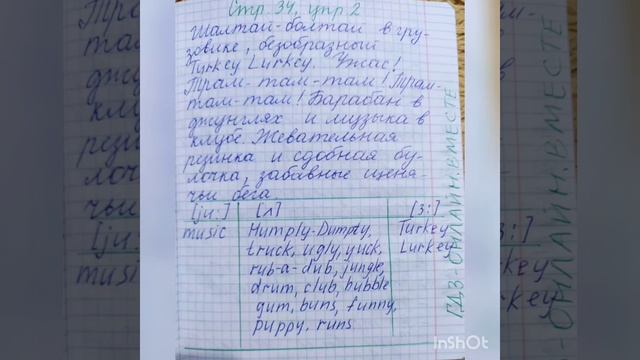 Стр. 34, упр. 2
Шалтай-болтай в гру-
зовике, безобразный
Turkey Lurkey. Ужас!
Трам-там-там! Трам-
там-там! Барабан в
джунглях и музыка в
клубе. Жевательная
резинка и сдобная бу-
лочка, забавные щеня-
чьи бега.
[ju:] [ʌ] [ɜ:]
music Humply-Dumpty, Turkey
truck, ugly, yuck, Lurkey
rub-a-dub, jungle,
drum, club, bubble
gum, buns, funny,
puppy, runs
ГДЗ-ОНЛАЙН.ВМЕСТЕ
InShOt